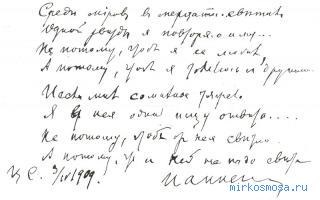 Среди мiров в мерцании светил
Одной звезды я повторяю имя...
Не потому, чтоб я ее любил
А потому, что я томлюсь с другими.
И если мне сомненье тяжело
Я у нея одной ищу ответа....
Не потому, чтоб от нея светло
А потому, что с ней не надо света
Ц. С. 3/IV 1909.
mirkosmosa.ru